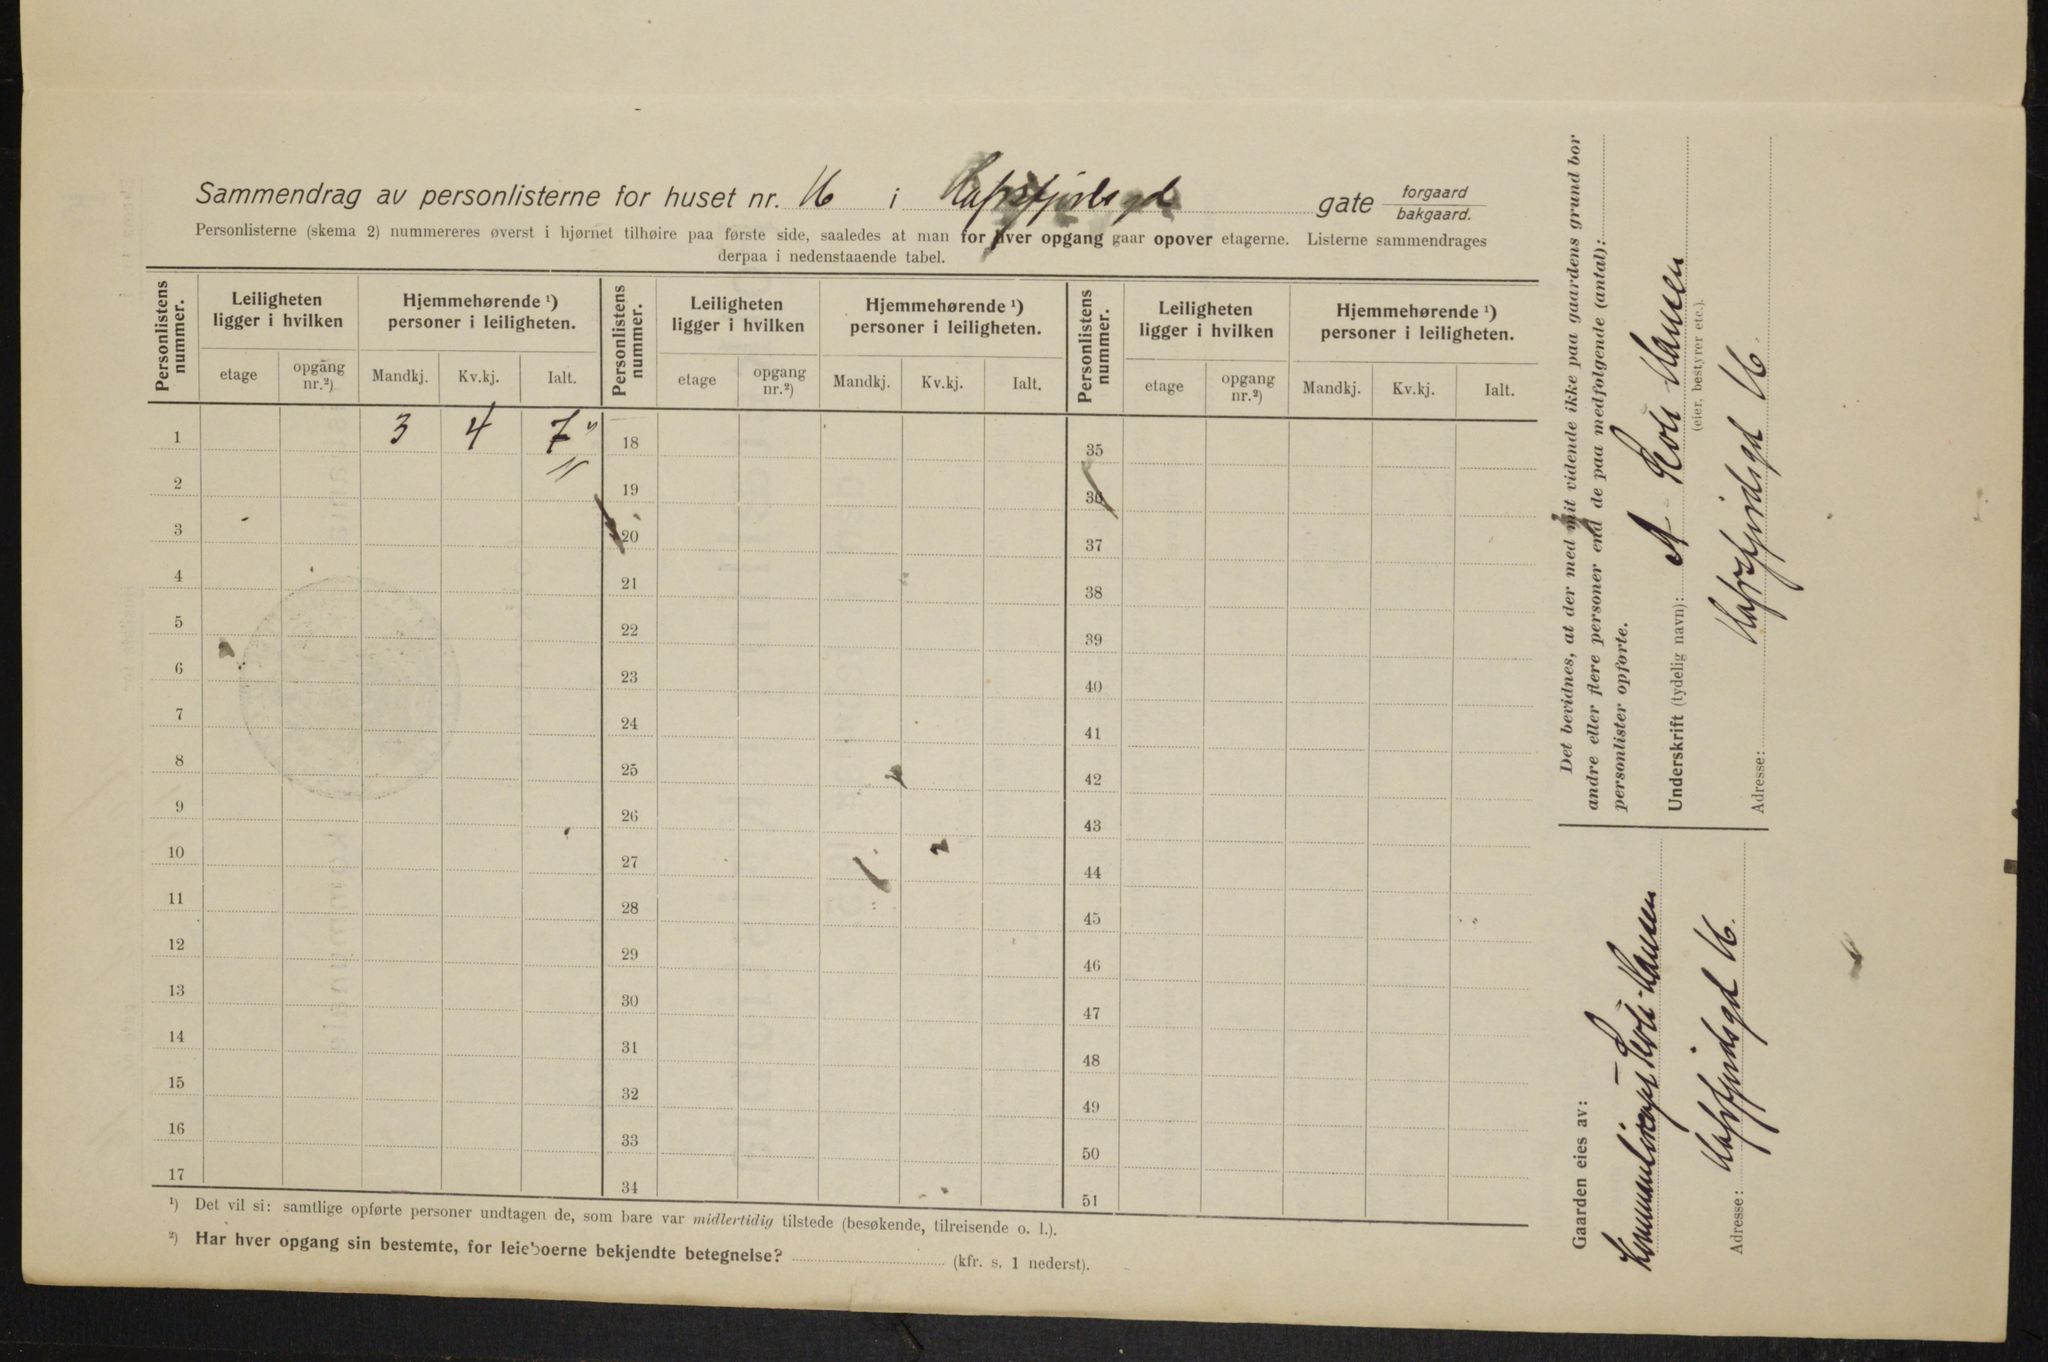 Sammendrag av personlisterne for huset nr. 16 i Hafrsfjordsgd gate forgaard bakgaard.
Personlisterne (skema 2) nummereres øverst i hjørnet tilhøire paa første side, saaledes at man for hver opgang gaar opover etagerne. Listerne sammendrages
derpaa i nedenstaaende tabel.
Personlistens nummer. Leiligheten ligger i hvilken Hjemmehørende ¹) personer i leiligheten. Personlistens nummer. Leiligheten ligger i hvilken Hjemmehørende ¹) personer i leiligheten. Personlistens nummer. Leiligheten ligger i hvilken Hjemmehørende ¹) personer i leiligheten.
etage opgang nr.²) Mandkj. Kv.kj. Ialt. etage opgang nr.²) Mandkj. Kv.kj. Ialt. etage opgang nr.²) Mandkj. Kv.kj. Ialt.
1 3 4 7 18 35
2 19 36
3 20 37
4 21 38
5 22 39
6 23 40
7 24 41
8 25 42
9 26 43
10 27 44
11 28 45
12 29 46
13 30 47
14 31 48
15 32 49
16 33 50
17 34 51
¹) Det vil si: samtlige opførte personer undtagen de, som bare var midlertidig tilstede (besøkende, tilreisende o. l.).
²) Har hver opgang sin bestemte, for leieboerne bekjendte betegnelse? (kfr. s. 1 nederst).
Det bevidnes, at der med mit vidende ikke paa gaardens grund bor
andre eller flere personer end de paa medfølgende (antal):
personlister opførte.
Underskrift (tydelig navn): A
Hansen
(eier, bestyrer etc.).
Adresse: Hafrsfjordsgd 16.
Gaarden eies av:
Hansen
Adresse: Hafrsfjordsgd 16.